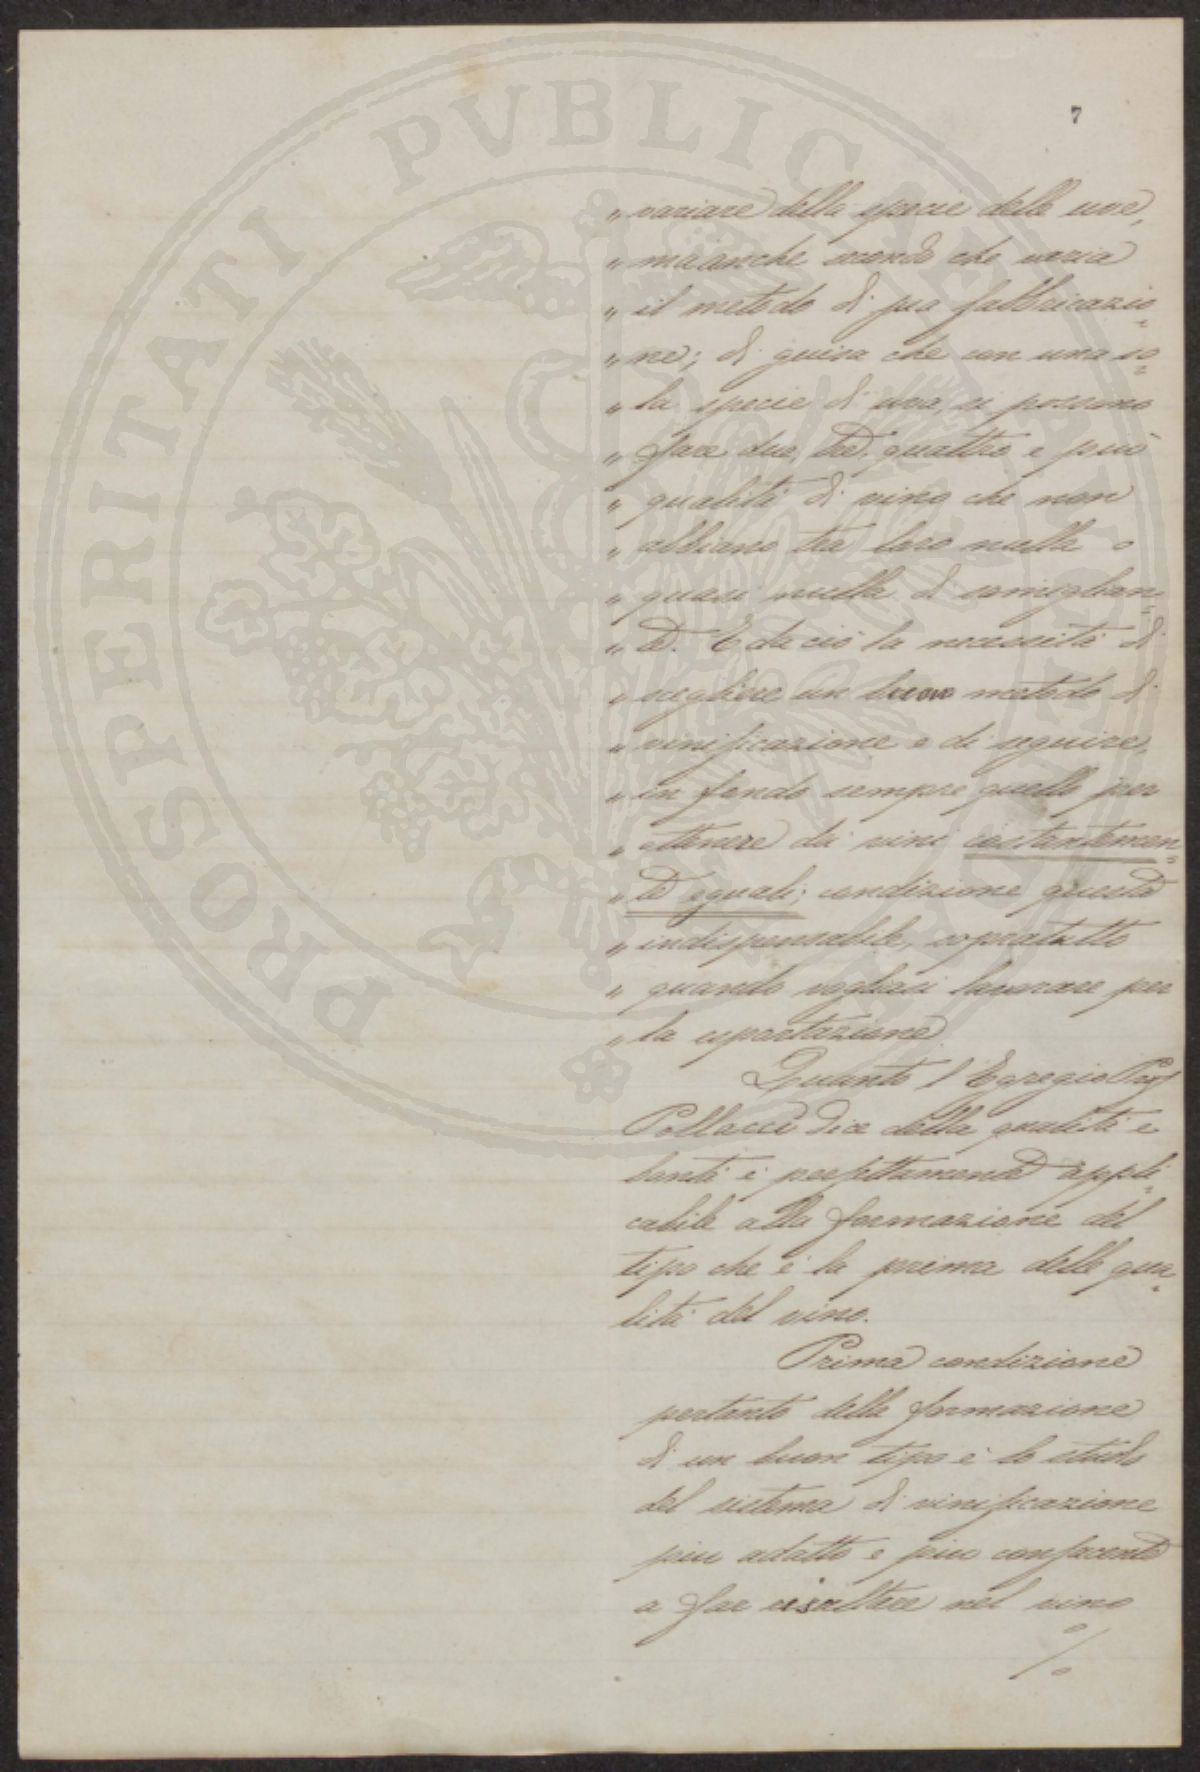 7
„ variare della specie delle uve,
„ ma anche secondo che varia
„ il metodo di sua fabbricazio=
„ ne; di guisa che con una so=
„ la specie di uva, si possono
„ fare due, tre, quattro e più
„ qualità di vino che non
„ abbiano tra loro nulla o
„ quasi nulla di somiglian=
„ te. E da ciò la necessità di
„ scegliere un buon metodo di
„ vinificazione e di seguire
„ in fondo sempre quello per
„ ottenere dei vini costantemen=
„ te eguali; condizione questa
„ indispensabile, sopratutto
„ quando vogliasi lavorare per
„ la esportazione.
Quanto l'Egregio Prof
Pollacci dice della qualità e
bontà è perfettamente appli=
cabile alla formazione del
tipo che è la prima delle qua=
lità del vino.
Prima condizione
pertanto della formazione
di un buon tipo è lo studio
del sistema di vinificazione
più adatto e più confacente
a far risaltare nel vino
%
PROSPERITATI PVBLICAE